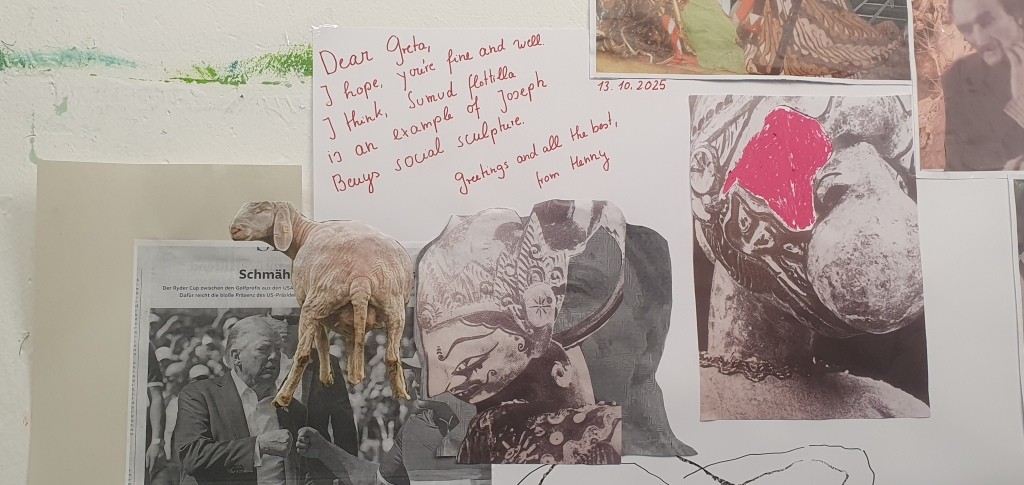 Dear Greta,
I hope, you're fine and well.
I think, Sumud flottilla
is an example of Joseph
Beuys social sculpture.
greetings and all the best,
from Hanny
13.10.2025
Schmäh
Der Ryder Cup zwischen den Golfprofis aus den USA
Dafür reicht die bloße Präsenz des US-Präside